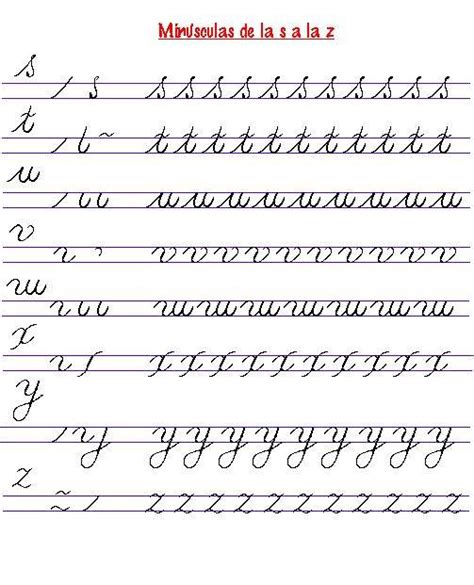 Minúsculas de la s a la z
s
s s s s s s s s s s s s
t
t t t t t t t t t t t
u
u u u u u u u u u
v
v v v v v v v v v v v
w
w w w w w w w w
x
x x x x x x x x x x
y
y y y y y y y y y
z
z z z z z z z z z z z